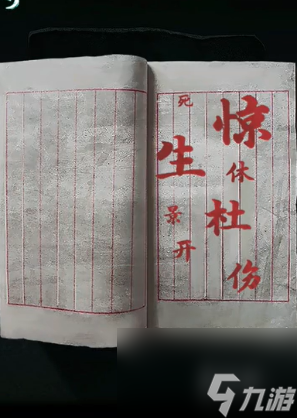 惊
休
杜
伤
死
生
景
开
九游